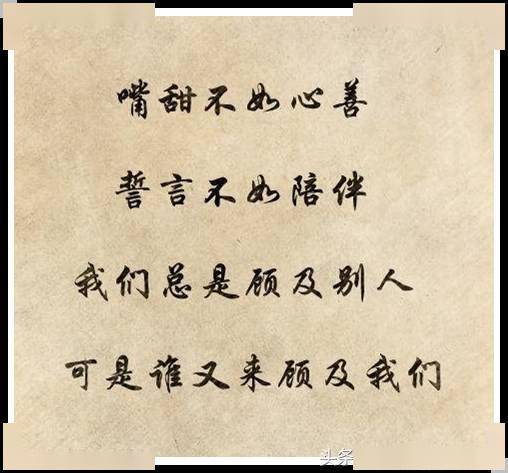 嘴甜不如心善
誓言不如陪伴
我们总是顾及别人
可是谁又来顾及我们
头条